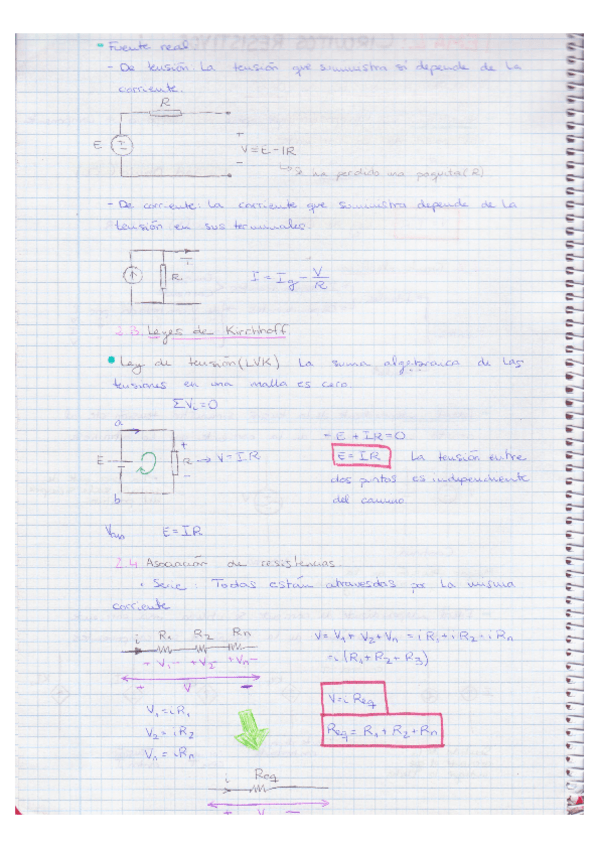 - Fuente real
- De tensión La tensión que suministra si depende de la
corriente.
R
E
+
V = E - IR
-
↳ se ha perdido una poquita (R)
- De corriente: La corriente que suministra depende de la
tensión en sus terminales.
I
R
I = Ig - V/R
2.3. Leyes de Kirchhoff
• Ley de tensión (LVK) La suma algebraica de las
tensiones en una malla es cero.
ΣVi = 0
a
+
E
R → V = I.R
-
b
- E + IR = 0
E = IR La tensión entre
dos puntos es independiente
del camino
E = IR
2.4 Asociación de resistencias
• Serie: Todas están atravesdas por la misma
corriente
i R1 R2 Rn
+ V1 - + V2 - + Vn -
+ V -
V = V1 + V2 + Vn = i R1 + i R2 - i Rn
= i (R1 + R2 - R3)
V1 = i R1
V2 = i R2
Vn = i Rn
V = i Req
Req = R1 + R2 + Rn
i Req
+ V -